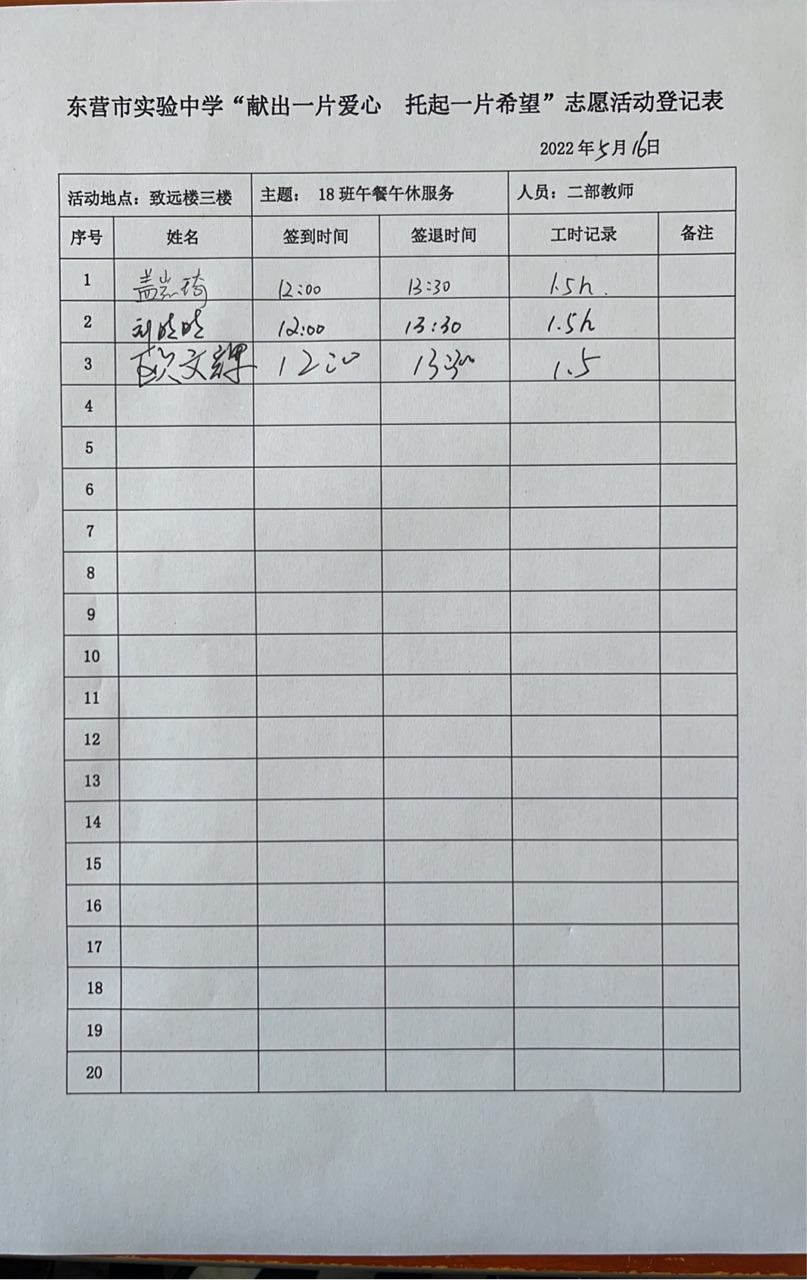 东营市实验中学“献出一片爱心 托起一片希望”志愿活动登记表
2022年5月16日
活动地点：致远楼三楼 主题： 18班午餐午休服务 人员：二部教师
序号 姓名 签到时间 签退时间 工时记录 备注
1 盖 琦 12:00 13:30 1.5h.
2 刘晓晓 12:00 13:30 1.5h
3 文 12:00 13:30 1.5
4
5
6
7
8
9
10
11
12
13
14
15
16
17
18
19
20